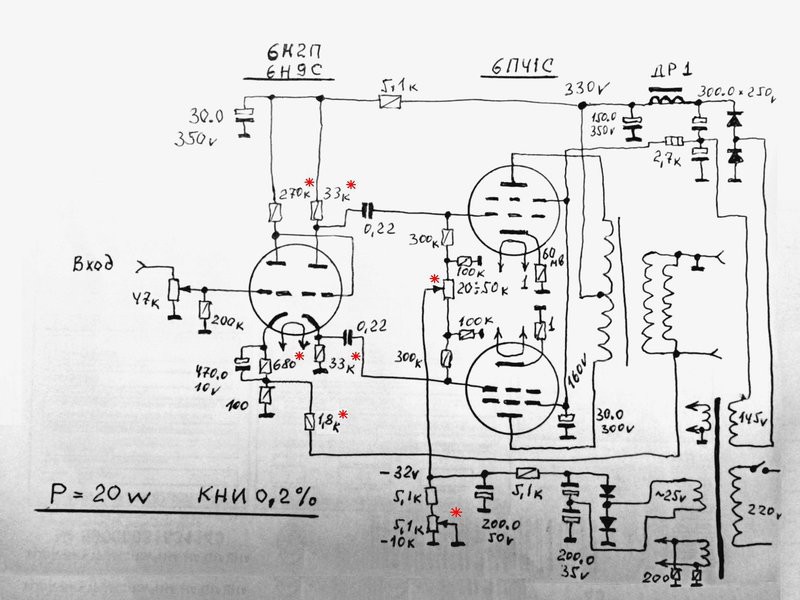 6Н2П
6Н9С
6П41С
ДР1
5,1к
330v
300.0 × 250v
30.0
350v
150.0
350v
2,7к
270к
33к
0,22
300к
60
мв
100к
1
20÷50к
Вход
47к
200к
100к
1
0,22
680
33к
300к
470.0
10v
100
1,8к
160v
30.0
300v
145v
-32v
5,1к
5,1к
~25v
5,1к
-10к
200.0
50v
200.0
35v
200
220v
P = 20w КНИ 0,2%